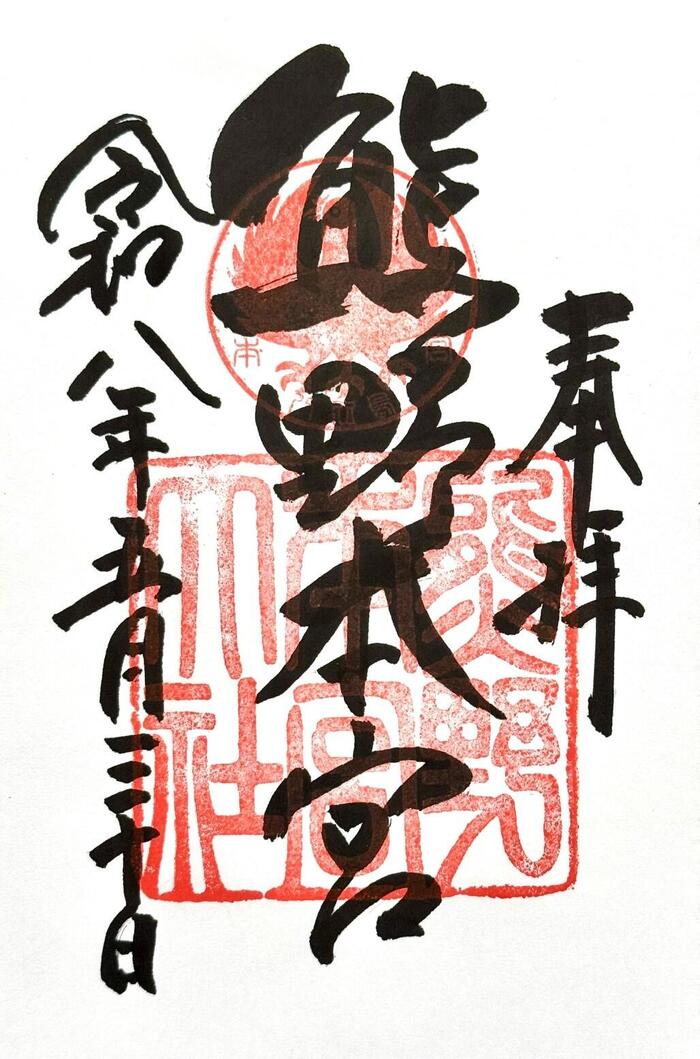 奉拝
熊野本宮
令和八年五月三十日
熊野
本宮
大社